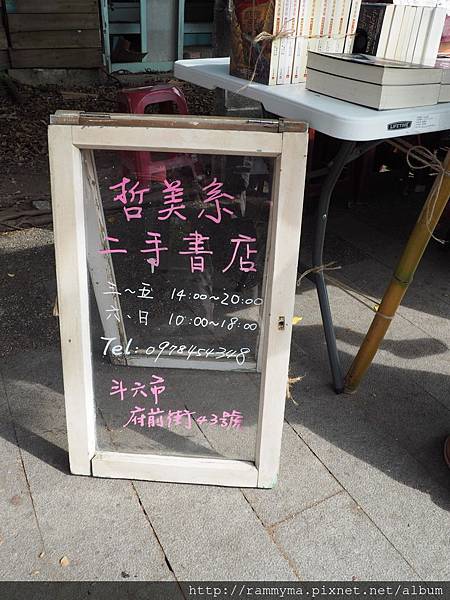 哲美系
二手書店
三～五 14:00~20:00
六、日 10:00~18:00
Tel: 0978454348
斗六市
府前街43號
LIFETIME
http://rammyma.pixnet.net/album